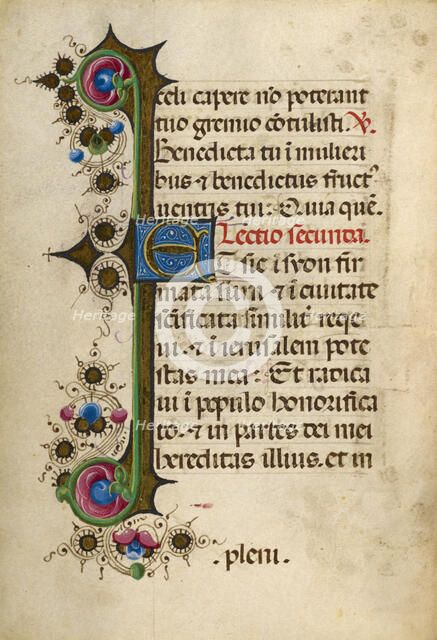 celi capere nō poterant
tuo gremio cōtulisti. ℣.
Benedicta tu ī mulieri
bus ⁊ benedictus fruct᾽
uentris tui: Quia quē.
Lectio secunda.
Et sic ī syon fir
mata sum ⁊ ī ciuitate
sc̄ificata similit̄ reqe
ui: ⁊ ī ierusalem pote
stas mea: Et radica
ui ī populo honorifica
to: ⁊ in partes dei mei
hereditas illius: et in
.pleni.